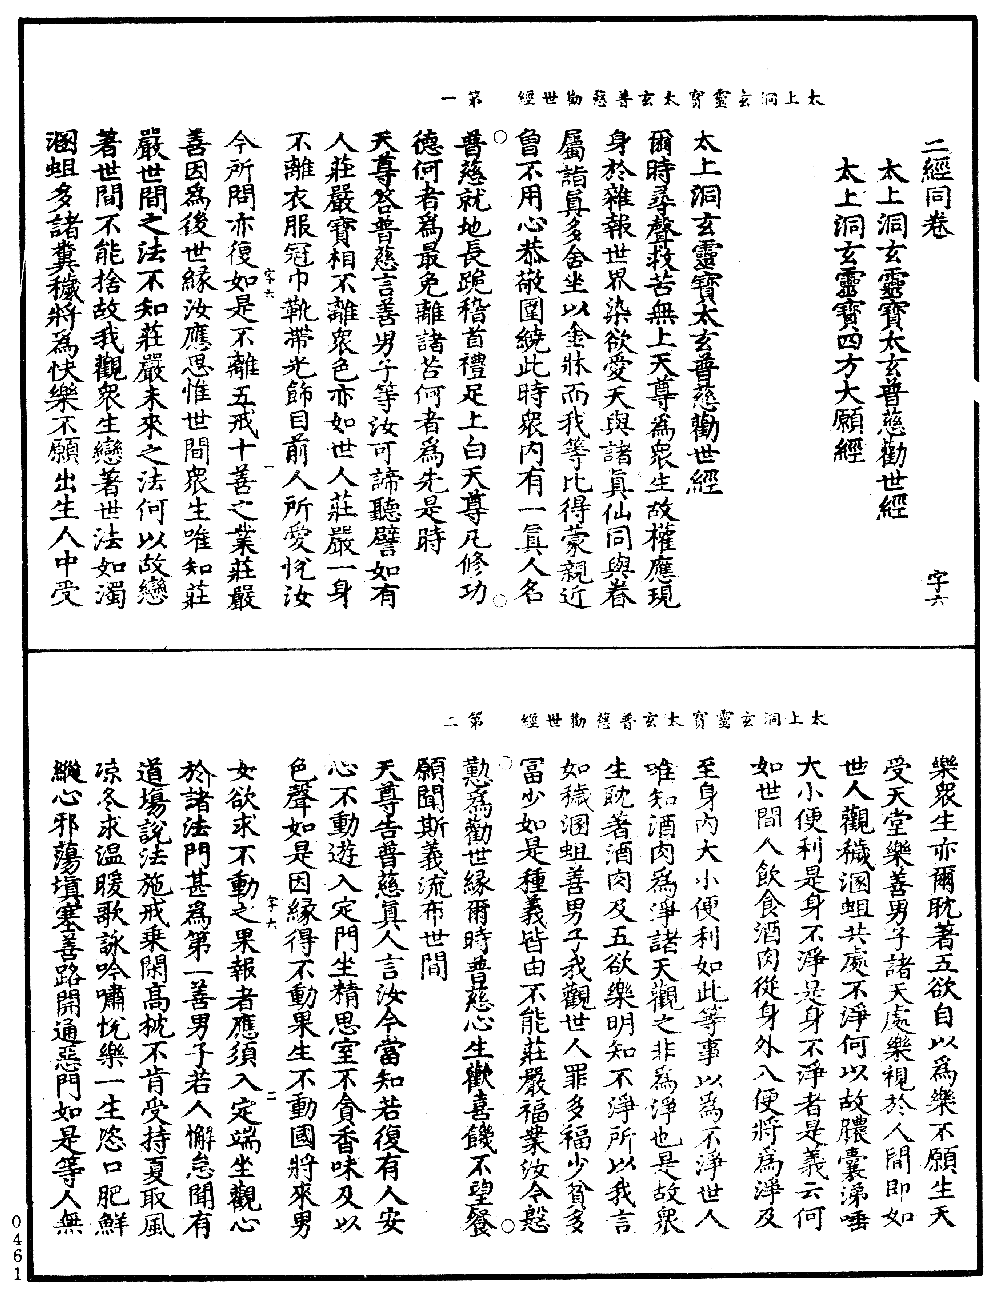 二經同卷　　字六
太上洞玄靈寶太玄普慈勸世經
太上洞玄靈寶四方大願經
太上洞玄靈寶太玄普慈勸世經　第一
太上洞玄靈寶太玄普慈勸世經
爾時尋聲救苦無上天尊爲衆生故權應現
身於雜報世界染欲愛天與諸眞仙同與眷
屬詣眞多舍坐以金牀而我等比得蒙親近
曾不用心恭敬圍繞此時衆內有一眞人名
普慈就地長跪稽首禮足上白天尊凡修功
德何者爲最免離諸苦何者爲先是時
天尊答普慈言善男子等汝可諦聽譬如有
人莊嚴寶相不離衆色亦如世人莊嚴一身
不離衣服冠巾靴帶光飾目前人所愛悅汝
字六　一
今所問亦復如是不離五戒十善之業莊嚴
善因爲後世緣汝應思惟世間衆生唯知莊
嚴世間之法不知莊嚴未來之法何以故戀
著世間不能捨故我觀衆生戀著世法如濁
溷蛆多諸糞穢將爲快樂不願出生人中受
太上洞玄靈寶太玄普慈勸世經　第二
樂衆生亦爾耽著五欲自以爲樂不願生天
受天堂樂善男子諸天處樂視於人間即如
世人觀穢溷蛆共處不淨何以故膿囊涕唾
大小便利是身不淨是身不淨者是義云何
如世間人飲食酒肉從身外入便將爲淨及
至身內大小便利如此等事以爲不淨世人
唯知酒肉爲淨諸天觀之非爲淨也是故衆
生耽著酒肉及五欲樂明知不淨所以我言
如穢溷蛆善男子我觀世人罪多福少貧多
富少如是種義皆由不能莊嚴福業汝今慇
懃爲勸世緣爾時普慈心生歡喜饑不望餐
願聞斯義流布世間
天尊告普慈眞人言汝今當知若復有人安
心不動遊入定門坐精思室不貪香味及以
色聲如是因緣得不動果生不動國將來男
字六　二
女欲求不動之果報者應須入定端坐觀心
於諸法門甚爲第一善男子若人懈怠聞有
道場說法施戒乘閑高枕不肯受持夏取風
涼冬求溫暖歌詠吟嘯悅樂一生恣口肥鮮
縱心邪蕩塡塞善路開通惡門如是等人無
0461